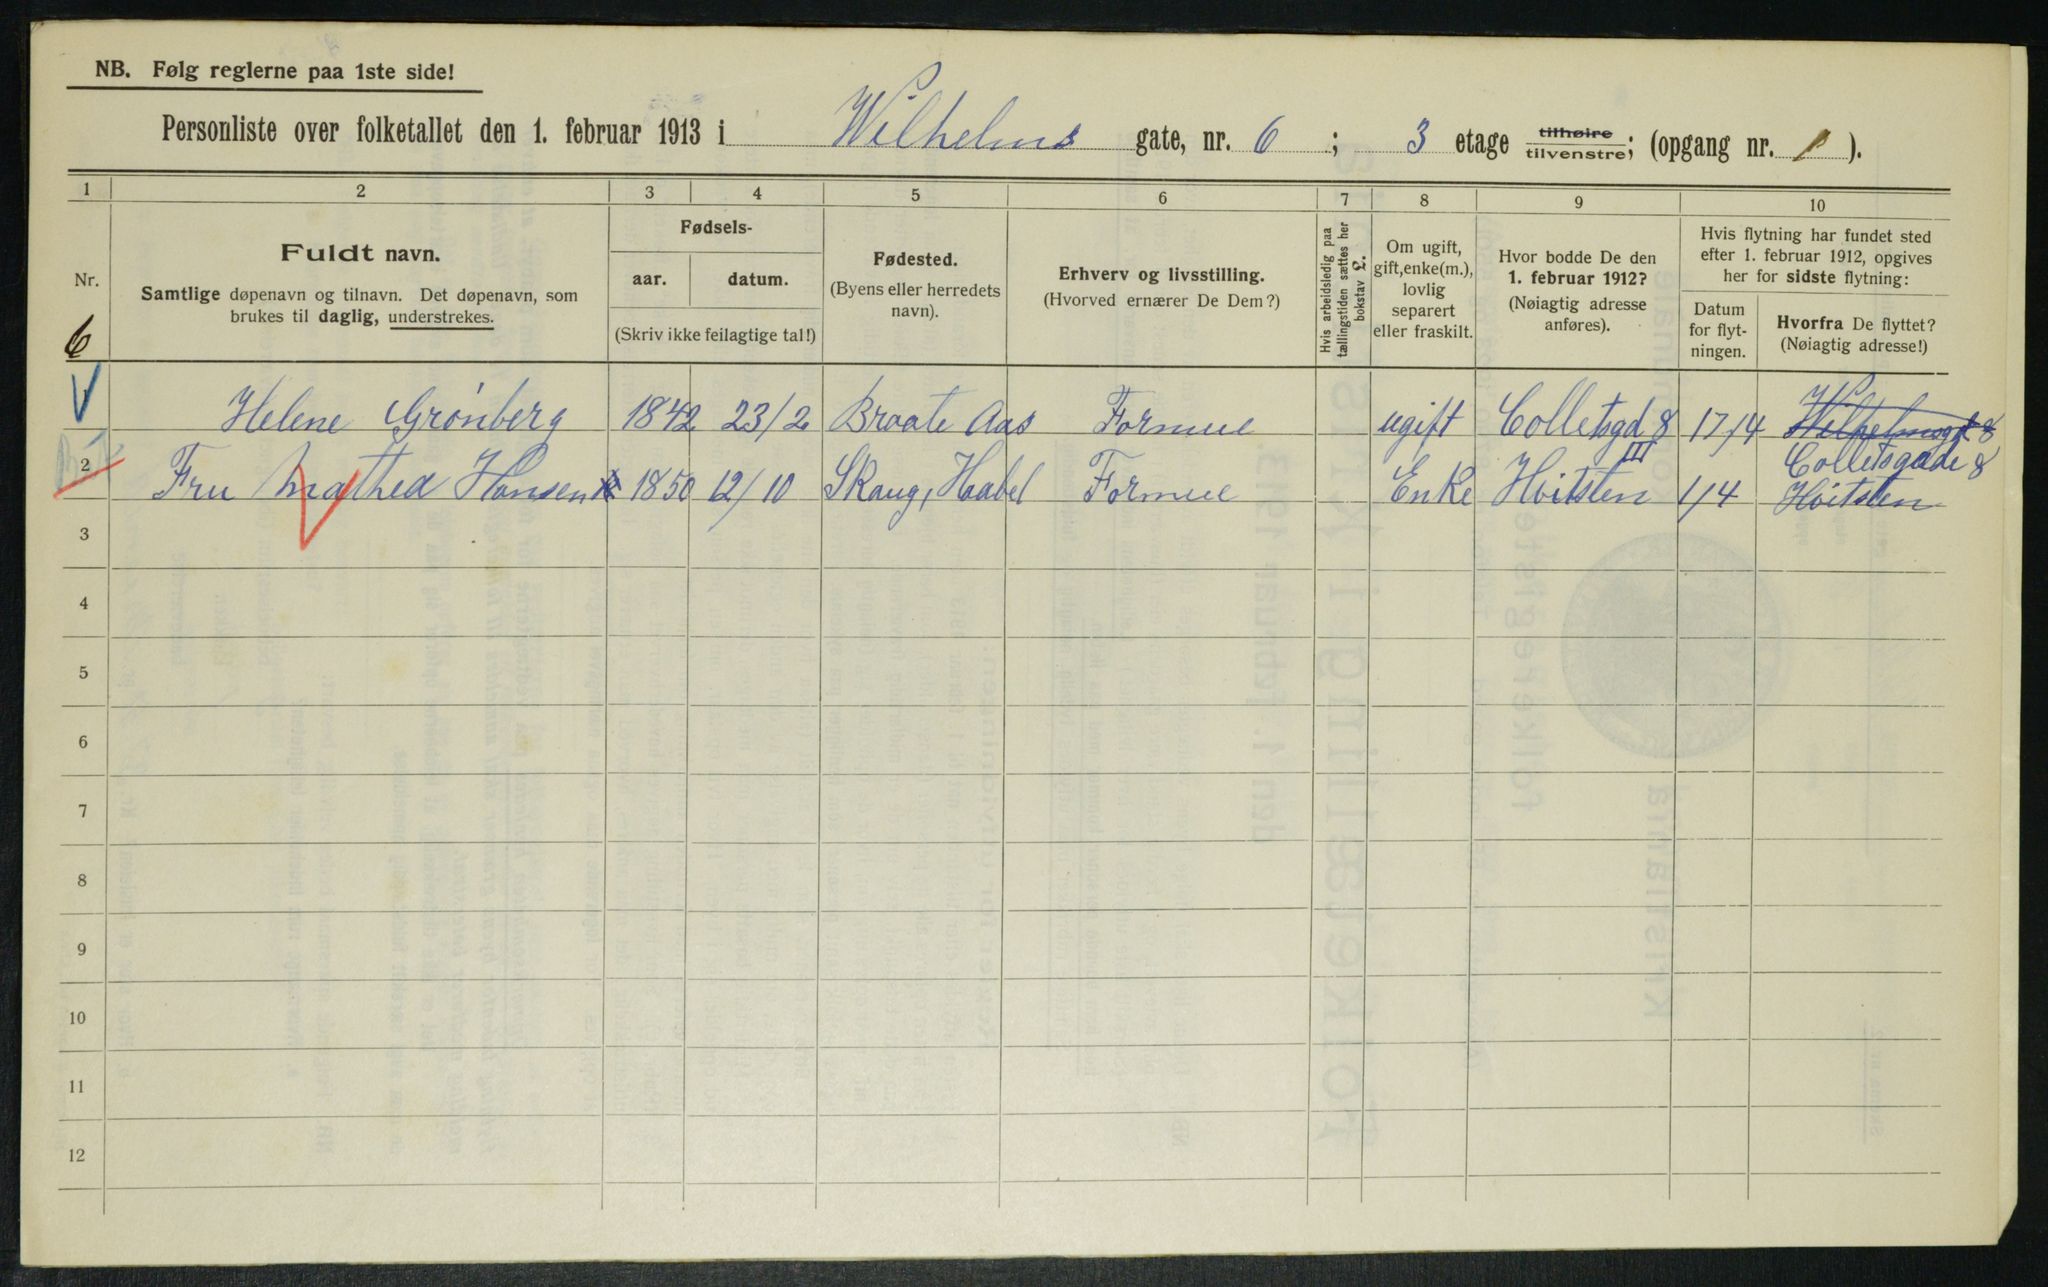 NB. Følg reglerne paa 1ste side!
Personliste over folketallet den 1. februar 1913 i Wilhelms gate, nr. 6; 3 etage tilhøire tilvenstre; (opgang nr. 1).
1 2 3 4 5 6 7 8 9 10
Nr.
6
Fuldt navn.
Samtlige døpenavn og tilnavn. Det døpenavn, som
brukes til daglig, understrekes.
Fødsels-
aar. datum.
(Skriv ikke feilagtige tal!)
Fødested.
(Byens eller herredets
navn).
Erhverv og livsstilling.
(Hvorved ernærer De Dem?)
Hvis arbeidsledig paa
tællingstiden sættes her
bokstav L.
Om ugift,
gift, enke(m.),
lovlig
separert
eller fraskilt.
Hvor bodde De den
1. februar 1912?
(Nøiagtig adresse
anføres).
Hvis flytning har fundet sted
efter 1. februar 1912, opgives
her for sidste flytning:
Datum
for flyt-
ningen.
Hvorfra De flyttet?
(Nøiagtig adresse!)
Helene Grønberg 1842 23/2 Braate Aas Formue ugift Colletsgd 8 III 17/4 Wilhelmsgt 8
Colletsgade 8
2 Fru Mathea Hansen 1850 12/10 Skaug, Habel Formue Enke Hvitsten 1/4 Hvitsten
3
4
5
6
7
8
9
10
11
12